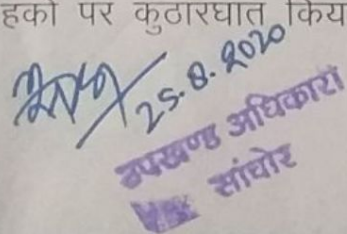 हकों पर कुठारघात किय
25.8.2020
उपखण्ड अधिकारी
सांचोर